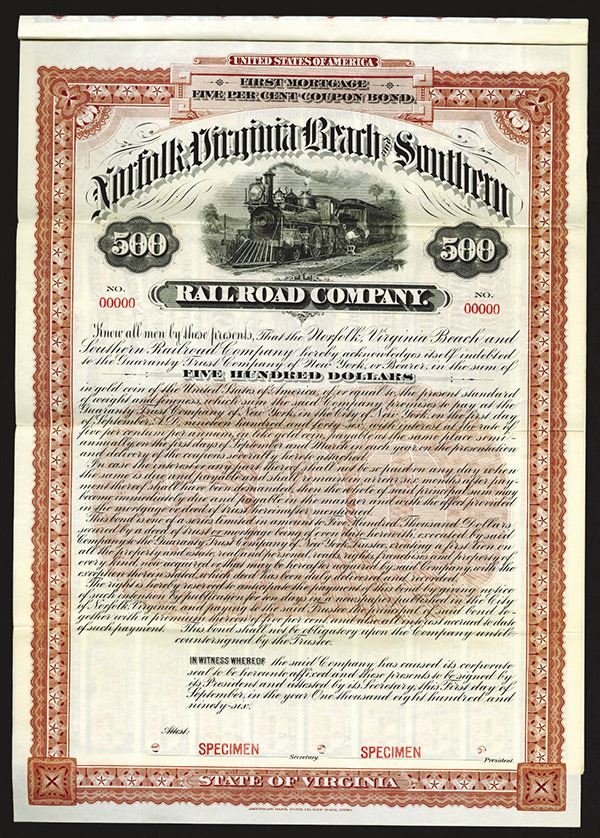 UNITED STATES OF AMERICA
FIRST MORTGAGE
FIVE PER CENT COUPON BOND.
Norfolk, Virginia Beach and Southern
500 500
NO. NO.
00000 00000
RAILROAD COMPANY.
Know all men by these presents, That the Norfolk, Virginia Beach and
Southern Railroad Company hereby acknowledges itself indebted
to the Guaranty Trust Company of New York, or Bearer, in the sum of
FIVE HUNDRED DOLLARS
in gold coin of the United States of America, of or equal to the present standard
of weight and fineness, which sum the said Company promises to pay at the
Guaranty Trust Company of New York, in the City of New York, on the first day
of September, A.D. nineteen hundred and forty-six, with interest at the rate of
five per centum per annum, in like gold coin, payable at the same place semi-
annually, on the first days of September and March in each year on the presentation
and delivery of the coupons severally hereto attached.
In case the interest or any part thereof shall not be so paid on any day when
the same is due and payable and shall remain in arrears six months after pay-
ment thereof shall have been demanded, then the whole of said principal sum may
become immediately due and payable in the manner and with the effect provided
in the mortgage or deed of trust hereinafter mentioned.
This bond is one of a series limited in amount to Five Hundred Thousand Dollars,
secured by a deed of trust or mortgage being of even date herewith, executed by said
Company to the Guaranty Trust Company of New York, Trustee, creating a first lien on
all the property and estate, real and personal, roads, rights, franchises and property of
every kind, now acquired or that may be hereafter acquired by said Company, with the
exception therein stated, which deed has been duly delivered and recorded.
The right is hereby reserved to anticipate the payment of this bond by giving notice
of such intention by publication for ten days in a newspaper published in the City
of Norfolk, Virginia, and paying to the said Trustee the principal of said bond, to-
gether with a premium thereon of five per cent, and also all interest accrued to date
of such payment. This bond shall not be obligatory upon the Company until
countersigned by the Trustee.
IN WITNESS WHEREOF the said Company has caused its corporate
seal to be hereunto affixed and these presents to be signed by
its President and attested by its Secretary, this First day of
September, in the year One thousand eight hundred and
ninety-six.
Attest:
SPECIMEN SPECIMEN
Secretary. President.
STATE OF VIRGINIA
AMERICAN BANK NOTE CO. NEW YORK.